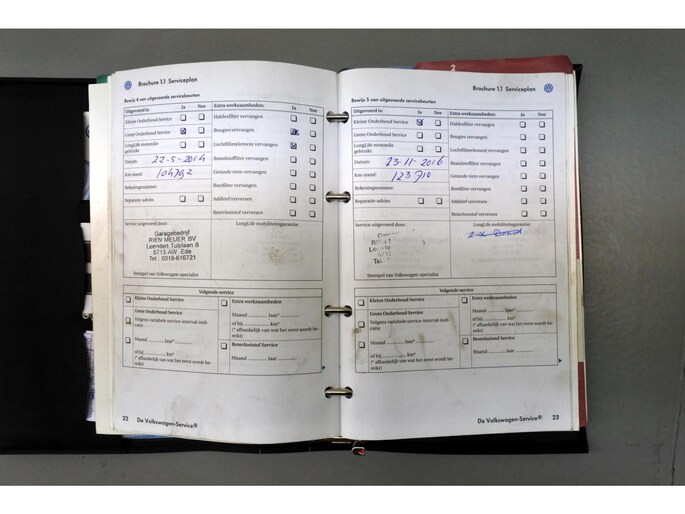 Brochure 1.1 Serviceplan
Bewijs 4 van uitgevoerde servicebeurten
Uitgevoerd is: Ja Nee
Kleine Onderhoud Service
Grote Onderhoud Service
LongLife motorolie
gebruikt
Datum: 22-5-2014
Km-stand: 104792
Rekeningnummer:
Reparatie-advies
Extra werkzaamheden: Ja Nee
Halderfilter vervangen
Bougies vervangen
Luchtfilterelement vervangen
Brandstoffilter vervangen
Getande riem vervangen
Roetfilter vervangen
Additief verversen
Remvloeistof verversen
Service uitgevoerd door:
Garagebedrijf
RIEN MEIJER BV
Leendert Tulplaan 6
6713 AW Ede
Tel.: 0318-616721
Stempel van Volkswagen-specialist
LongLife mobiliteitsgarantie:
Volgende service
Kleine Onderhoud Service
Grote Onderhoud Service
Volgens variabele service-interval-indi-
catie
Maand .......... Jaar* ..........
of bij .......... km*
(* afhankelijk van wat het eerst wordt be-
reikt)
Extra werkzaamheden
Maand .......... Jaar* ..........
of bij .......... km*
(* afhankelijk van wat het eerst wordt be-
reikt)
Remvloeistof Service
Maand .......... Jaar ..........
22 De Volkswagen-Service®
2
Brochure 1.1 Serviceplan
Bewijs 5 van uitgevoerde servicebeurten
Uitgevoerd is: Ja Nee
Kleine Onderhoud Service
Grote Onderhoud Service
LongLife motorolie
gebruikt
Datum: 23-11-2016
Km-stand: 123710
Rekeningnummer:
Reparatie-advies
Extra werkzaamheden: Ja Nee
Halderfilter vervangen
Bougies vervangen
Luchtfilterelement vervangen
Brandstoffilter vervangen
Getande riem vervangen
Roetfilter vervangen
Additief verversen
Remvloeistof verversen
Service uitgevoerd door:
Stempel van Volkswagen-specialist
LongLife mobiliteitsgarantie:
Volgende service
Kleine Onderhoud Service
Grote Onderhoud Service
Volgens variabele service-interval-indi-
catie
Maand .......... Jaar* ..........
of bij .......... km*
(* afhankelijk van wat het eerst wordt be-
reikt)
Extra werkzaamheden
Maand .......... Jaar* ..........
of bij .......... km*
(* afhankelijk van wat het eerst wordt be-
reikt)
Remvloeistof Service
Maand .......... Jaar ..........
De Volkswagen-Service® 23